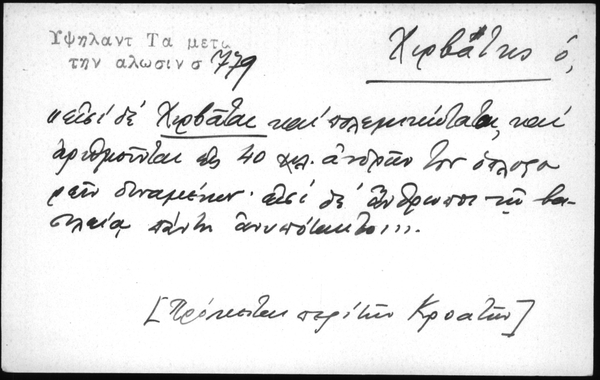 Υψηλαντ Τα μετα
την αλωσιν σ 779
Χιρβάτης ὁ,
"εἰσί δέ Χιρβᾶται καί πολεμικώτατοι, καί
ἀριθμοῦνται εἰς 40 χιλ. ἀνδρῶν τῶν ὁπλοφο
ρεῖν δυναμένων· εἰσί δέ ἄνθρωποι τῇ βα-
σιλείᾳ πάντη ἀνυπότακτοι,,.
[Πρόκειται περί τῶν Κροατῶν]